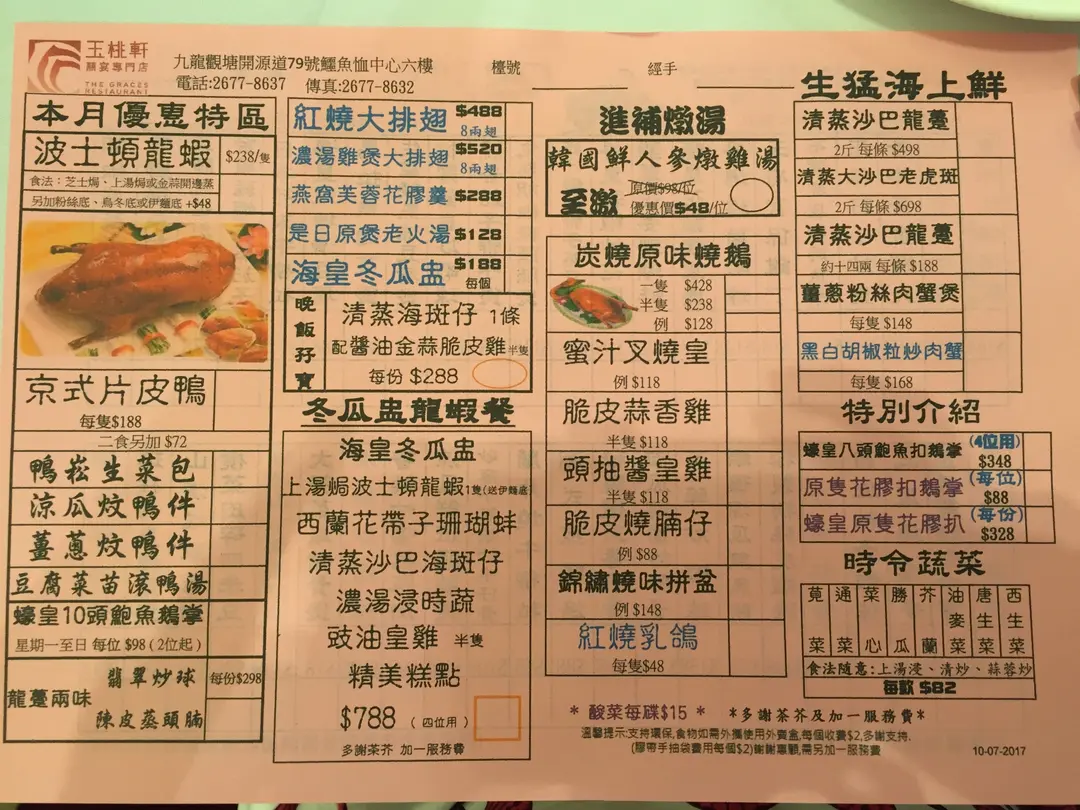 玉桃軒
囍宴專門店
THE GRACES
RESTAURANT
九龍觀塘開源道79號鱷魚恤中心六樓
電話:2677-8637 傳真:2677-8632
檯號
經手
本月優惠特區
波士頓龍蝦 $238/隻
食法：芝士焗、上湯焗或金蒜開邊蒸
另加粉絲底、烏冬底或伊麵底 +$48
京式片皮鴨
每隻$188
二食另加 $72
鴨崧生菜包
涼瓜炆鴨件
薑蔥炆鴨件
豆腐菜苗滾鴨湯
蠔皇10頭鮑魚鵝掌
星期一至日 每位 $98 (2位起)
龍躉兩味
翡翠炒球
陳皮蒸頭腩
每份$298
紅燒大排翅 $488
8兩翅
濃湯雞煲大排翅 $520
8兩翅
燕窩芙蓉花膠羹 $288
是日原煲老火湯 $128
海皇冬瓜盅 $188
每個
晚飯孖寶
清蒸海斑仔 1條
配醬油金蒜脆皮雞 半隻
每份 $288
冬瓜盅龍蝦餐
海皇冬瓜盅
上湯焗波士頓龍蝦1隻(送伊麵底)
西蘭花帶子珊瑚蚌
清蒸沙巴海斑仔
濃湯浸時蔬
豉油皇雞 半隻
精美糕點
$788 （四位用）
多謝茶芥 加一服務費
進補燉湯
韓國鮮人參燉雞湯
至激
原價$98/位
優惠價$48/位
炭燒原味燒鵝
一隻 $428
半隻 $238
例 $128
蜜汁叉燒皇
例 $118
脆皮蒜香雞
半隻 $118
頭抽醬皇雞
半隻 $118
脆皮燒腩仔
例 $88
錦繡燒味拼盆
例 $148
紅燒乳鴿
每隻$48
* 酸菜每碟$15 *
*多謝茶芥及加一服務費*
溫馨提示:支持環保,食物如需外攜使用外賣盒,每個收費$2,多謝支持.
(膠帶手抽袋費用每個$2)謝謝惠顧,需另加一服務費
生猛海上鮮
清蒸沙巴龍躉
2斤 每條 $498
清蒸大沙巴老虎斑
2斤 每條 $698
清蒸沙巴龍躉
約十四兩 每條 $188
薑蔥粉絲肉蟹煲
每隻 $148
黑白胡椒粒炒肉蟹
每隻 $168
特別介紹
蠔皇八頭鮑魚扣鵝掌 (4位用) $348
原隻花膠扣鵝掌 (每位) $88
蠔皇原隻花膠扒 (每份) $328
時令蔬菜
莧菜 通菜 菜心 勝瓜 芥蘭 油麥菜 唐生菜 西生菜
食法隨意:上湯浸、清炒、蒜蓉炒
每款 $82
10-07-2017